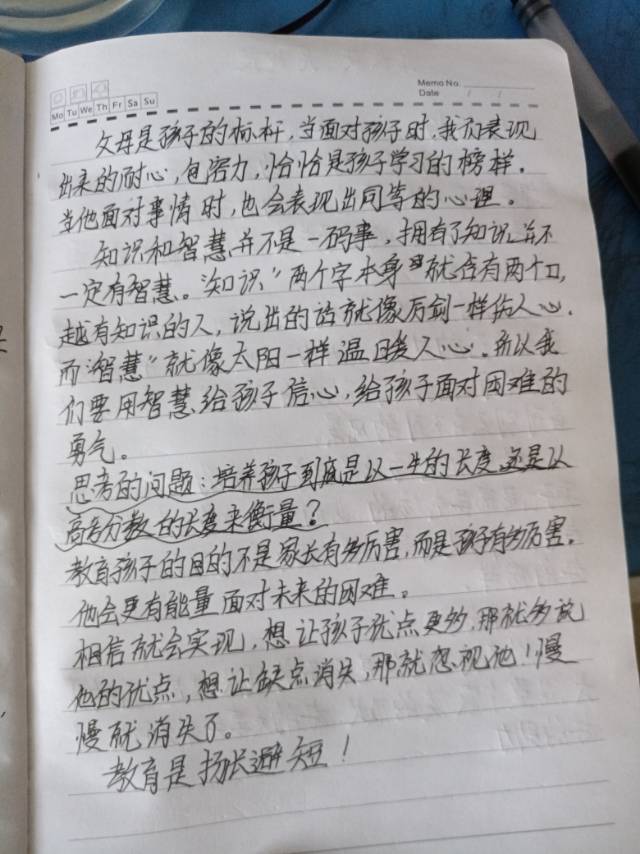 Memo No.
Date / /
Mo Tu We Th Fr Sa Su
父母是孩子的标杆，当面对孩子时，我们表现
出来的耐心，包容力，恰恰是孩子学习的榜样。
当他面对事情时，也会表现出同等的心理。
知识和智慧并不是一码事，拥有了知识并不
一定有智慧。"知识"两个字本身就含有两个口，
越有知识的人，说出的话就像厉剑一样伤人心.
而"智慧"就像太阳一样温暖人心。所以我
们要用智慧给孩子信心，给孩子面对困难的
勇气。
思考的问题：培养孩子到底是以一生的长度还是以
高考分数的长度来衡量？
教育孩子的目的不是家长有多厉害，而是孩子有多厉害。
他会更有能量面对未来的困难。
相信就会实现，想让孩子优点更多，那就多说
他的优点，想让缺点消失，那就忽视他！慢
慢就消失了。
教育是扬长避短！